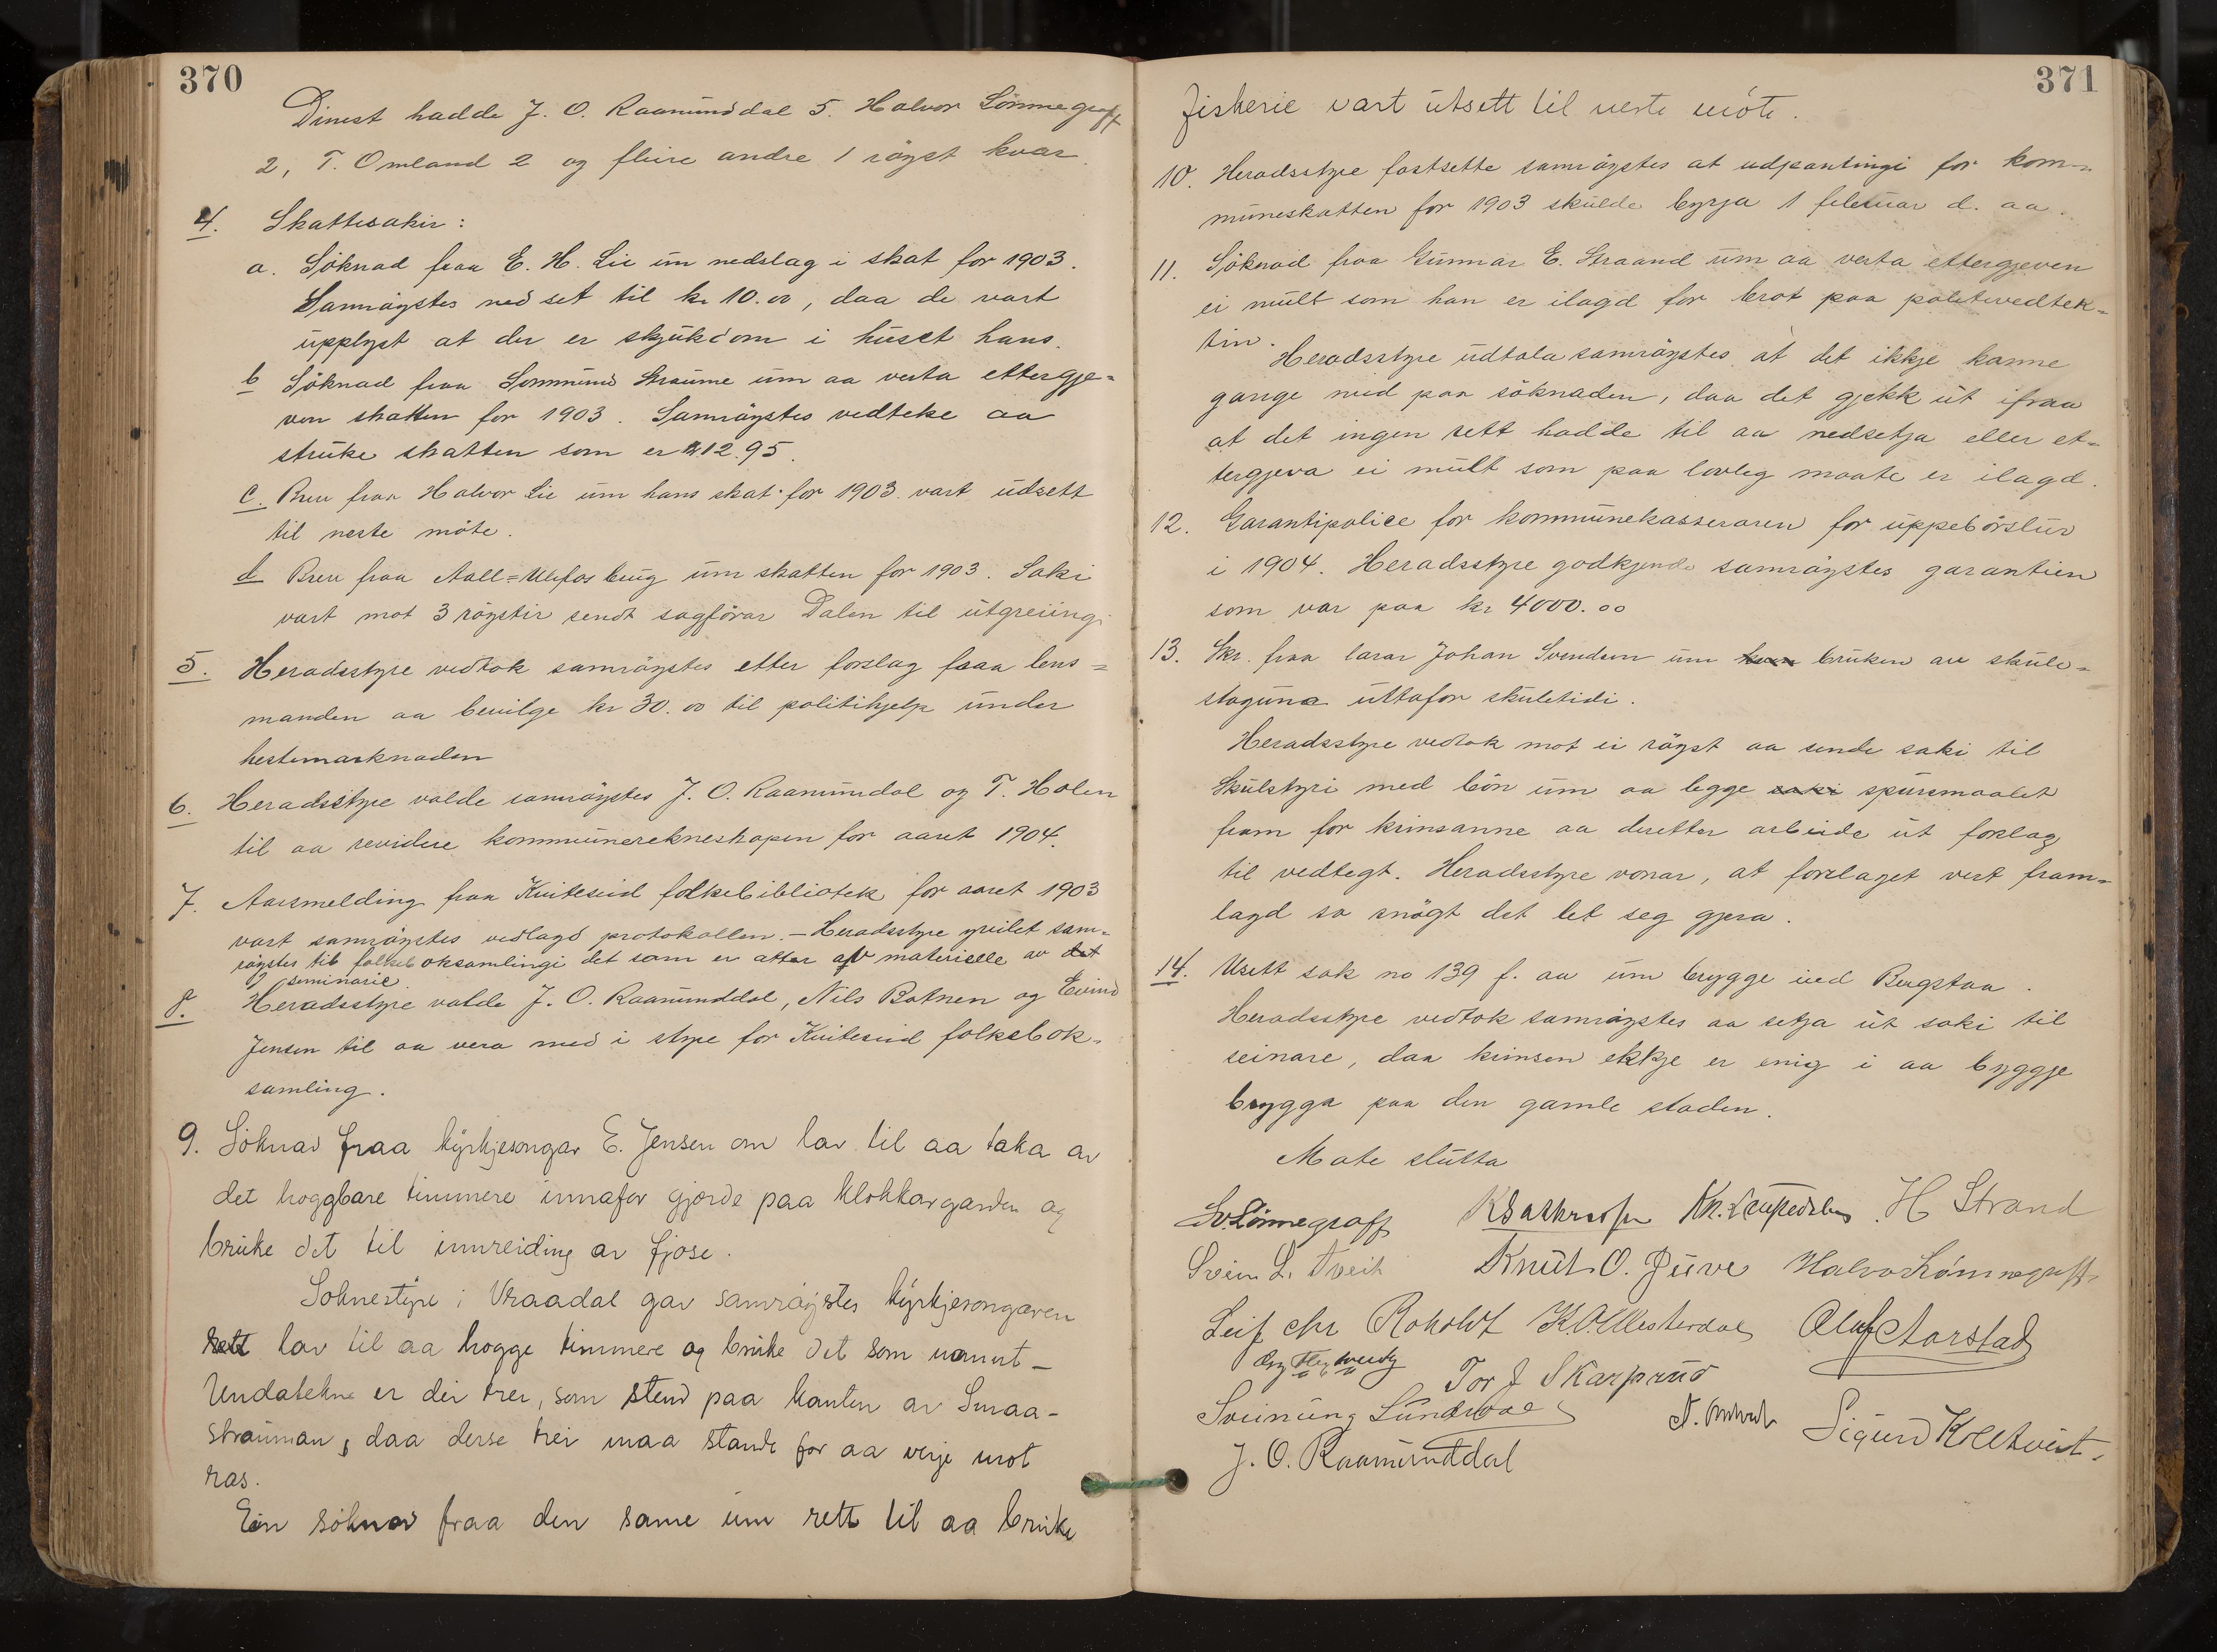 370
Dinest hadde J. O. Raamunddal 5. Halvor Lönnegraff
2, T. Omland 2 og fleire andre 1 röyst kvar.
4. Skattesakir:
a. Söknad fraa E. H. Lie um nedslag i skat for 1903.
Samröystes nedset til kr 10.00, daa de vart
upplyst at der er skjukdom i huset hans.
b Söknad fraa Sommund Straume um aa verta ettergje=
ven skatten for 1903. Samröystes vedteke aa
struke skatten som er kr 12.95.
c. Brev fraa Halvor Lie um hans skat for 1903 vart udsett
til neste möte.
d Brev fraa Aall=Ulefos brug um skatten for 1903. Saki
vart mot 3 röystir sendt sagförar Dalen til utgreiing.
5. Heradsstyre vedtok samröystes etter forslag fraa lens=
manden aa bevilge kr 30.00 til politihjelp under
hestemarknaden
6. Heradsstyre valde samröystes J. O. Raamundal og T. Holen
til aa revidere kommunerekneskapen for aaret 1904.
7. Aarsmelding fraa Kviteseid folkebibliotek for aaret 1903
vart samröystes vedlagd protokollen. — Heradsstyre yvilet sam=
röystes til folkeboksamlingi det som er atter af materielle av det
seminarie
8. Heradsstyre valde J. O. Raamunddal, Nils Botnen og Eivind
Jensen til aa vera med i styre for Kviteseid folkebok=
samling.
9. Söknad fraa kyrkjesongar E. Jensen om lov til aa taka av
det hoggbare timmere innafor gjorde paa klokkargarden og
bruke det til innreiding av fjose.
Soknestyre i Vraadal gav samröystes kyrkjesongaren
rett lov til aa hogge timmere og bruke det som nemnt —
Undatekne er dei trer, som stend paa kanten av Smaa-
strauman, daa desse trei maa stande for aa verje mot
ras.
Ein söknad fraa den same um rett til aa bruke
371
fiskerie vart utsett til neste möte.
10. Heradsstyre fastsette samröystes at udpantingi for kom=
muneskatten for 1903 skulde byrja 1 februar d. aa.
11. Söknad fraa Gunnar E. Straand um aa verta ettergjeven
ei mult som han er ilagd for brot paa politivedtek=
tin.
Heradsstyre udtala samröystes at det ikkje kanne
gange med paa söknaden, daa det gjekk ut ifraa
at det ingen rett hadde til aa nedsetja eller et=
tergjeva ei mult som paa lovleg maate er ilagd.
12. Garantipolice for kommunekasseraren for uppebörslur
i 1904. Heradsstyre godkjende samröystes garantien
som var paa kr 4000.00
13. Skr. fraa lærar Johan Svendsen um bruken av skule=
stoguna uttafor skuletidi.
Heradsstyre vedtok mot ei röyst aa sende saki til
Skulstyri med bön um aa legge saki spursmaalet
fram for krinsanne aa deretter arbeide ut forslag
til vedtegt. Heradsstyre vonar, at forslaget vert fram=
lagd so snögt det let seg gjera.
14. Utsett sak no 139 f. aa um brygge ved Bugstaa.
Heradsstyre vedtok samröystes aa setja ut saki til
seinare, daa krinsen ekkje er enig i aa byggje
brygga paa den gamle staden.
Möte slutta
Sv. Lönnegraff H Strand
Svein L. Tveit Knut O. Juve Halvor Lönnegraff
Leif chr Roholdt K.O. Vesterdal Oluf Aarstad
Tor J Skarprud
Sveinung Sundvoe Sigurd Kolltveit.
J. O. Raamunddal